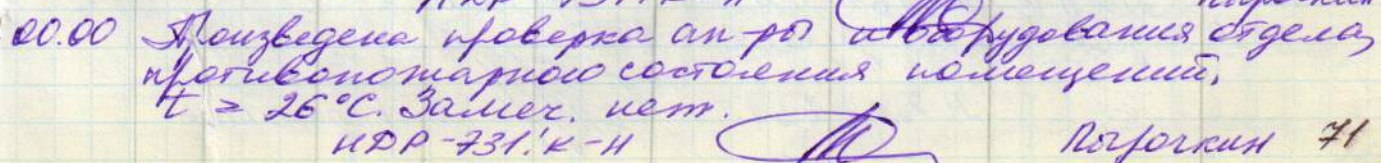 00.00 Произведена проверка ап-ры и оборудования отдела,
противопожарного состояния помещений,
t = 26°C. Замеч. нет.
НДР-731: к-н Пырочкин 71